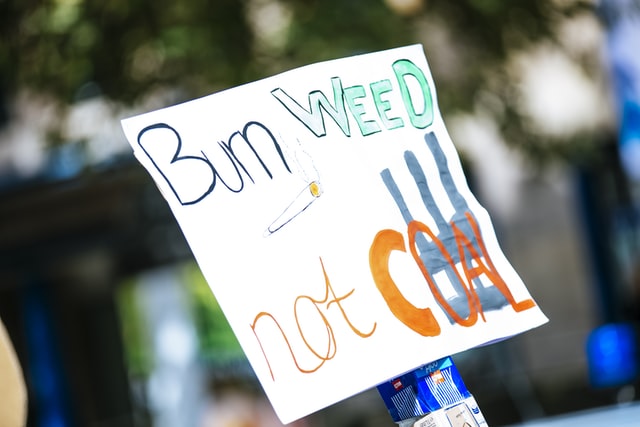 Burn WEED
not COAL